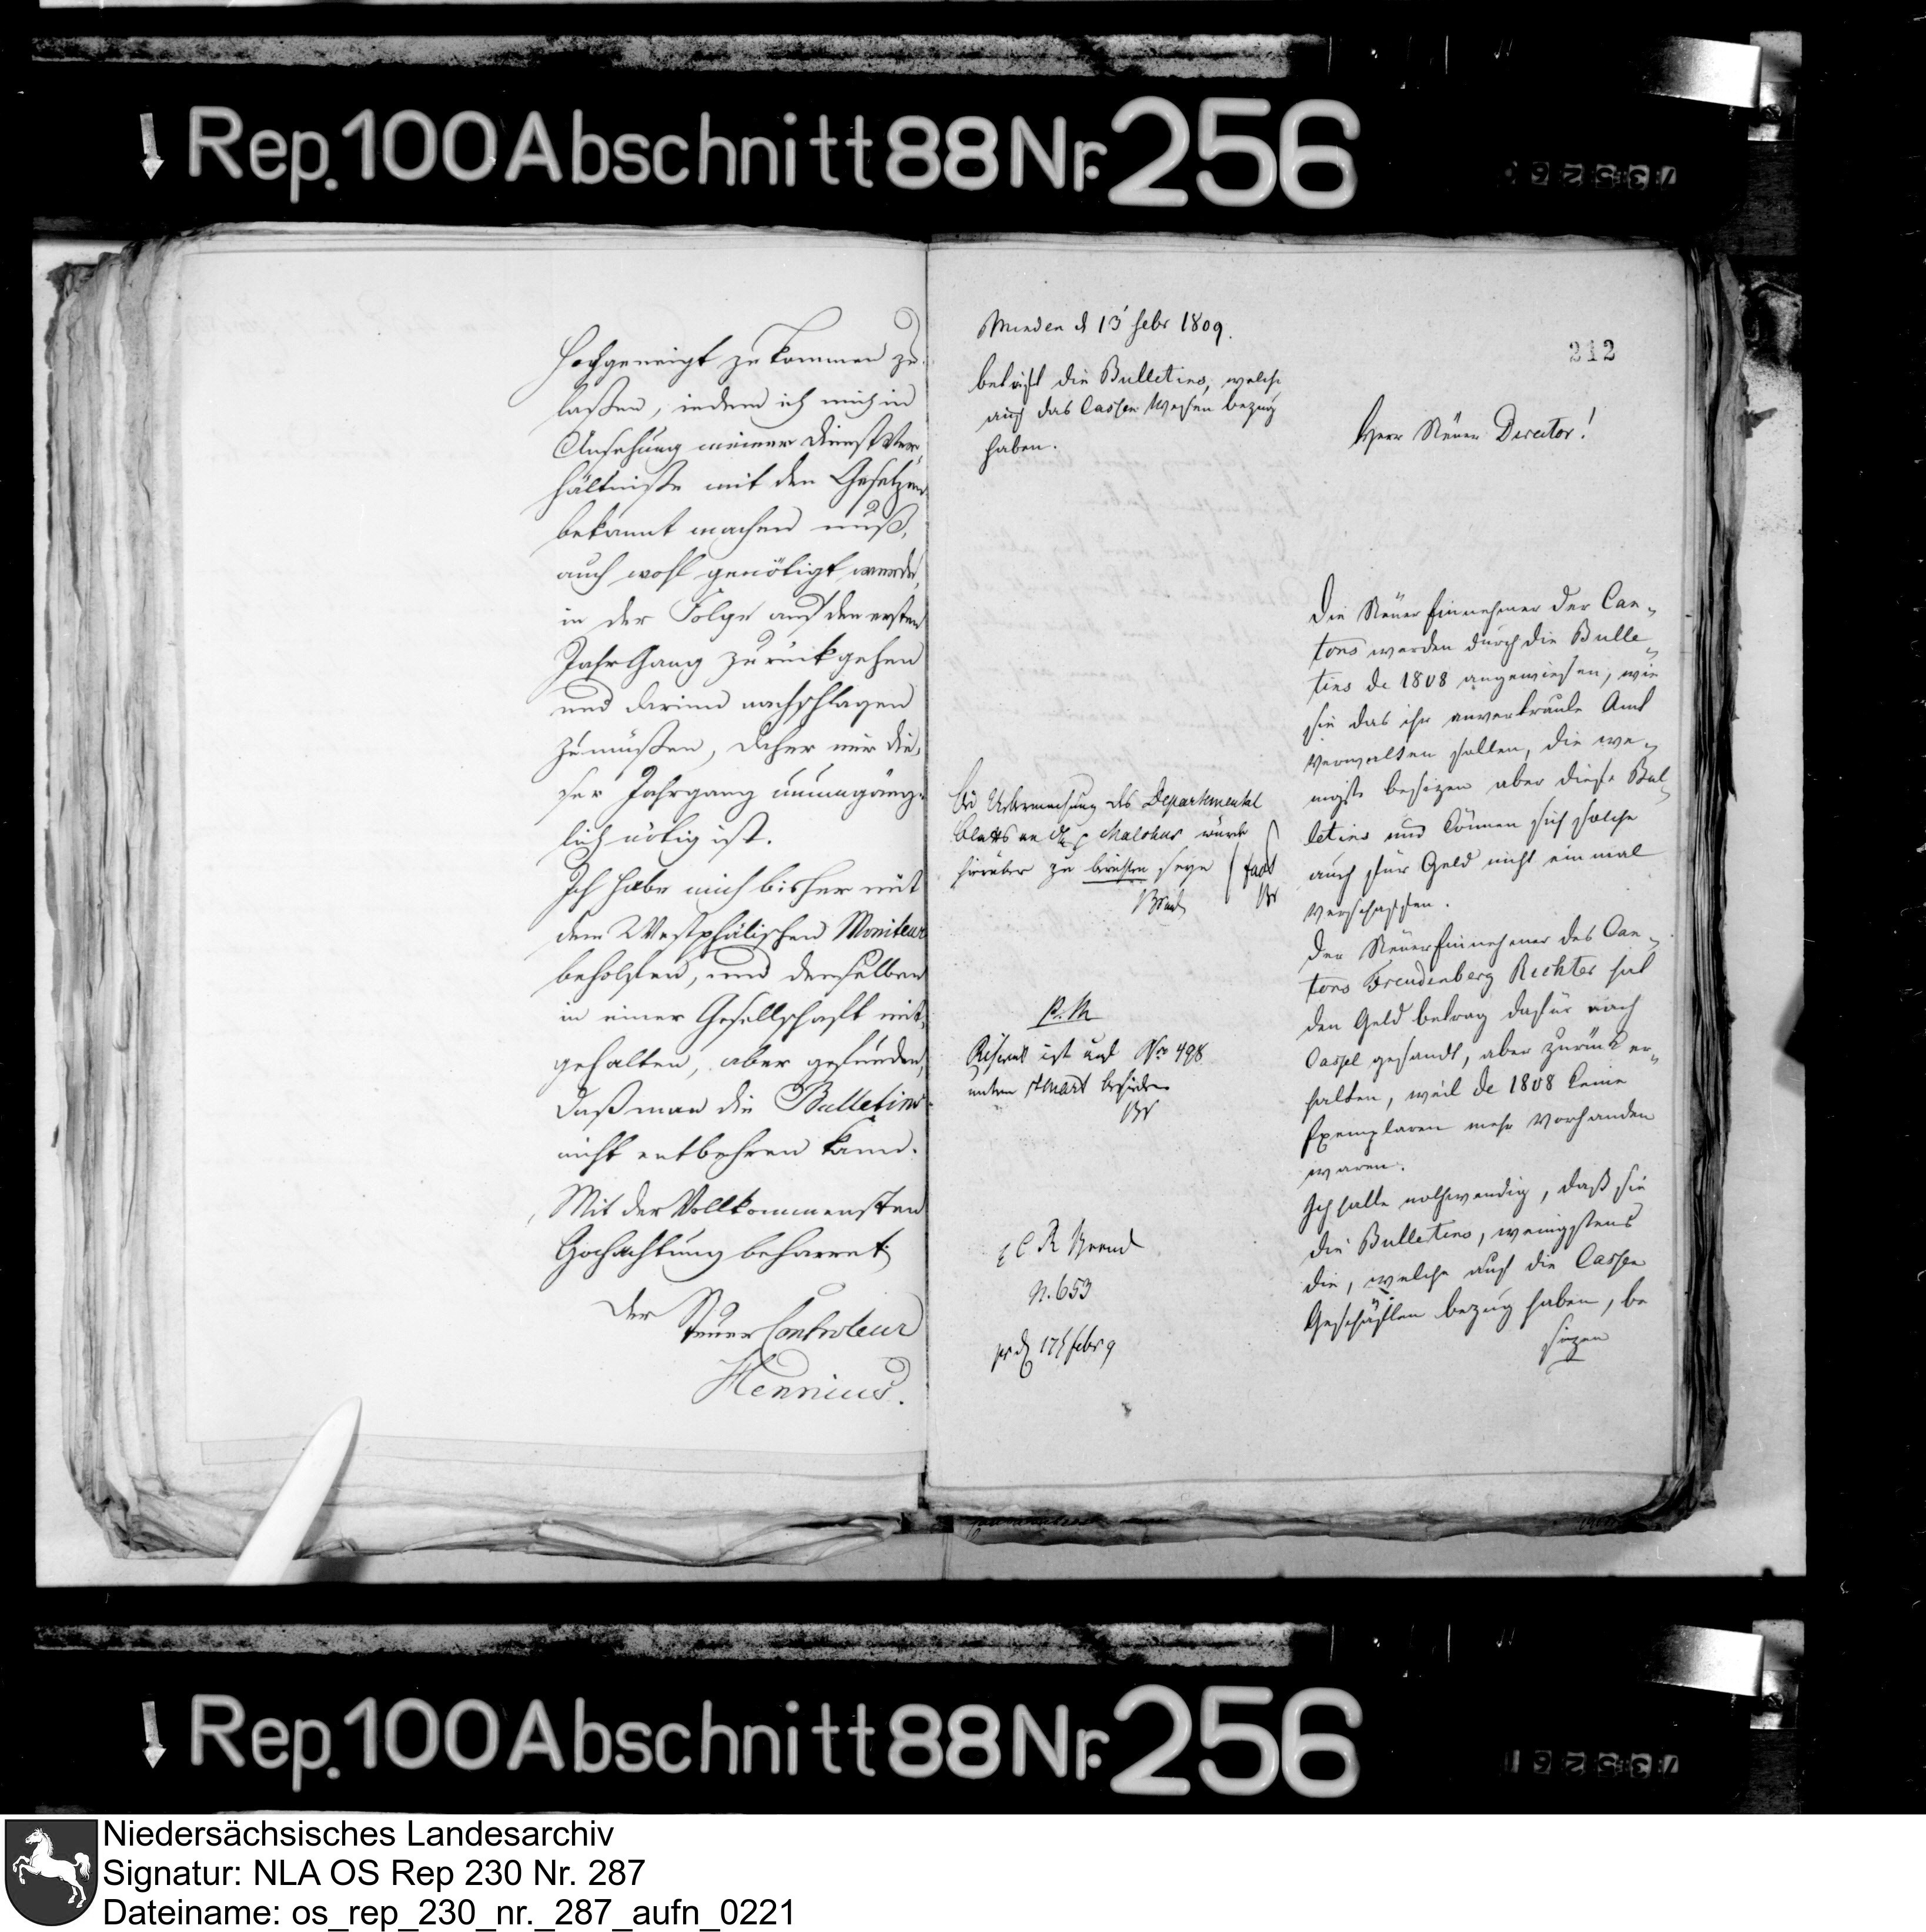 Rep. 100 Abschnitt 88 Nr. 256
Hochgeneigt zukommen zu
laßen, indem ich mich in
Ansehung meiner Dienst Ver,
hältniße mit den Gesetzen
bekannt machen muß,
auch wohl genötigt werde,
in der Folge auf den ersten
Jahr Gang zurückgehen
und darinn nachschlagen
zu müßen, daher mir die,
ser Jahrgang unumgäng,
lich nötig ist.
Ich habe mich bisher mit
dem Westphälischen Moniteur
beholfen, und denselben
in einer Gesellschaft mit,
gehalten, aber gefunden,
daß man die Bulletins
nicht entbehren kann.
Mit der Vollkommensten
Hochachtung beharret
der Steuer Controleur
Henrius.
Minden d 13 febr 1809.
betrift die Bulletins, welche
auf das Cassen Wesen bezug
haben.
212
Herr Steuer Director!
Die Steuer Einnehmer der Can,
tons werden durch die Bulle,
tins de 1808 angewiesen, wie
sie das ihr anvertraute Amt
Verwalten sollen, die we,
nigste besizen aber diese Bul,
letins und können sich solche
auch für Geld nicht einmal
Verschaffen.
Der Steuer Einnehmer des Can,
tons Freudenberg Richter hat
den Geld betrag dafür nach
Cassel gesandt, aber zurück er,
halten, weil de 1808 keine
Exemplaren mehr Vorhanden
waren.
Ich halte nothwendig, daß sie
die Bulletins, wenigstens
die, welche auf die Cassen
Geschäften bezug haben, be
sizen
Bei Uebermachung des Departemental
Blatts an Malchus würde
hierüber zu berichten seyn
P. M.
ist auf No 498
N. 653
17 febr 9
Rep. 100 Abschnitt 88 Nr. 256
Niedersächsisches Landesarchiv
Signatur: NLA OS Rep 230 Nr. 287
Dateiname: os_rep_230_nr._287_aufn_0221